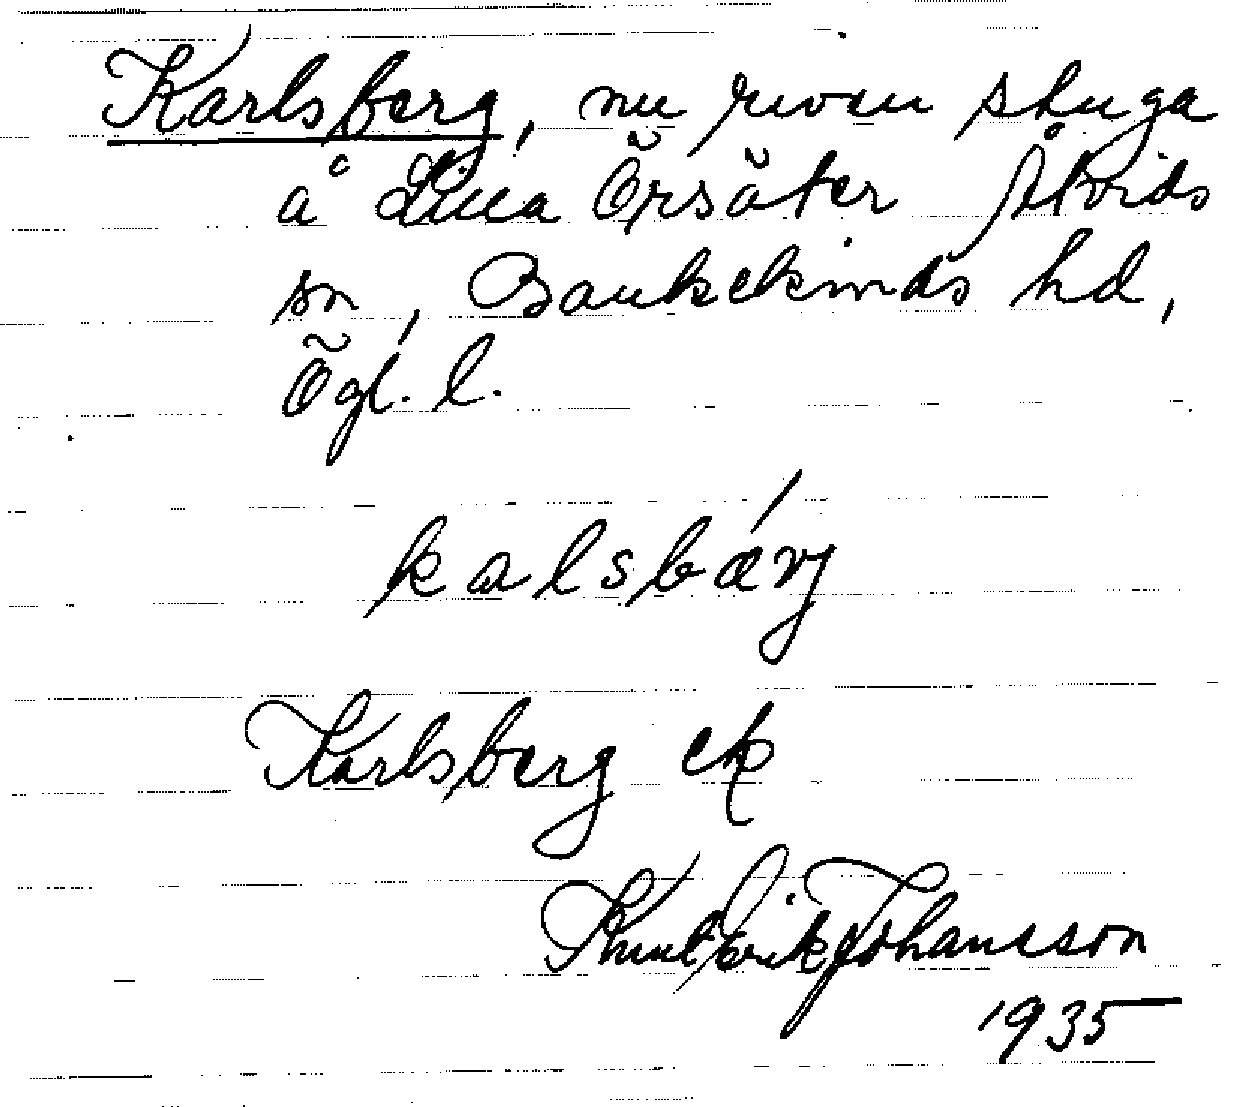 Karlsberg, nu riven stuga
å Lilla Örsäter Åtvids
sn, Bankekinds hd,
Ögl. l.
kalsbárj
Karlsberg ek
Knut Erik Johansson
1935